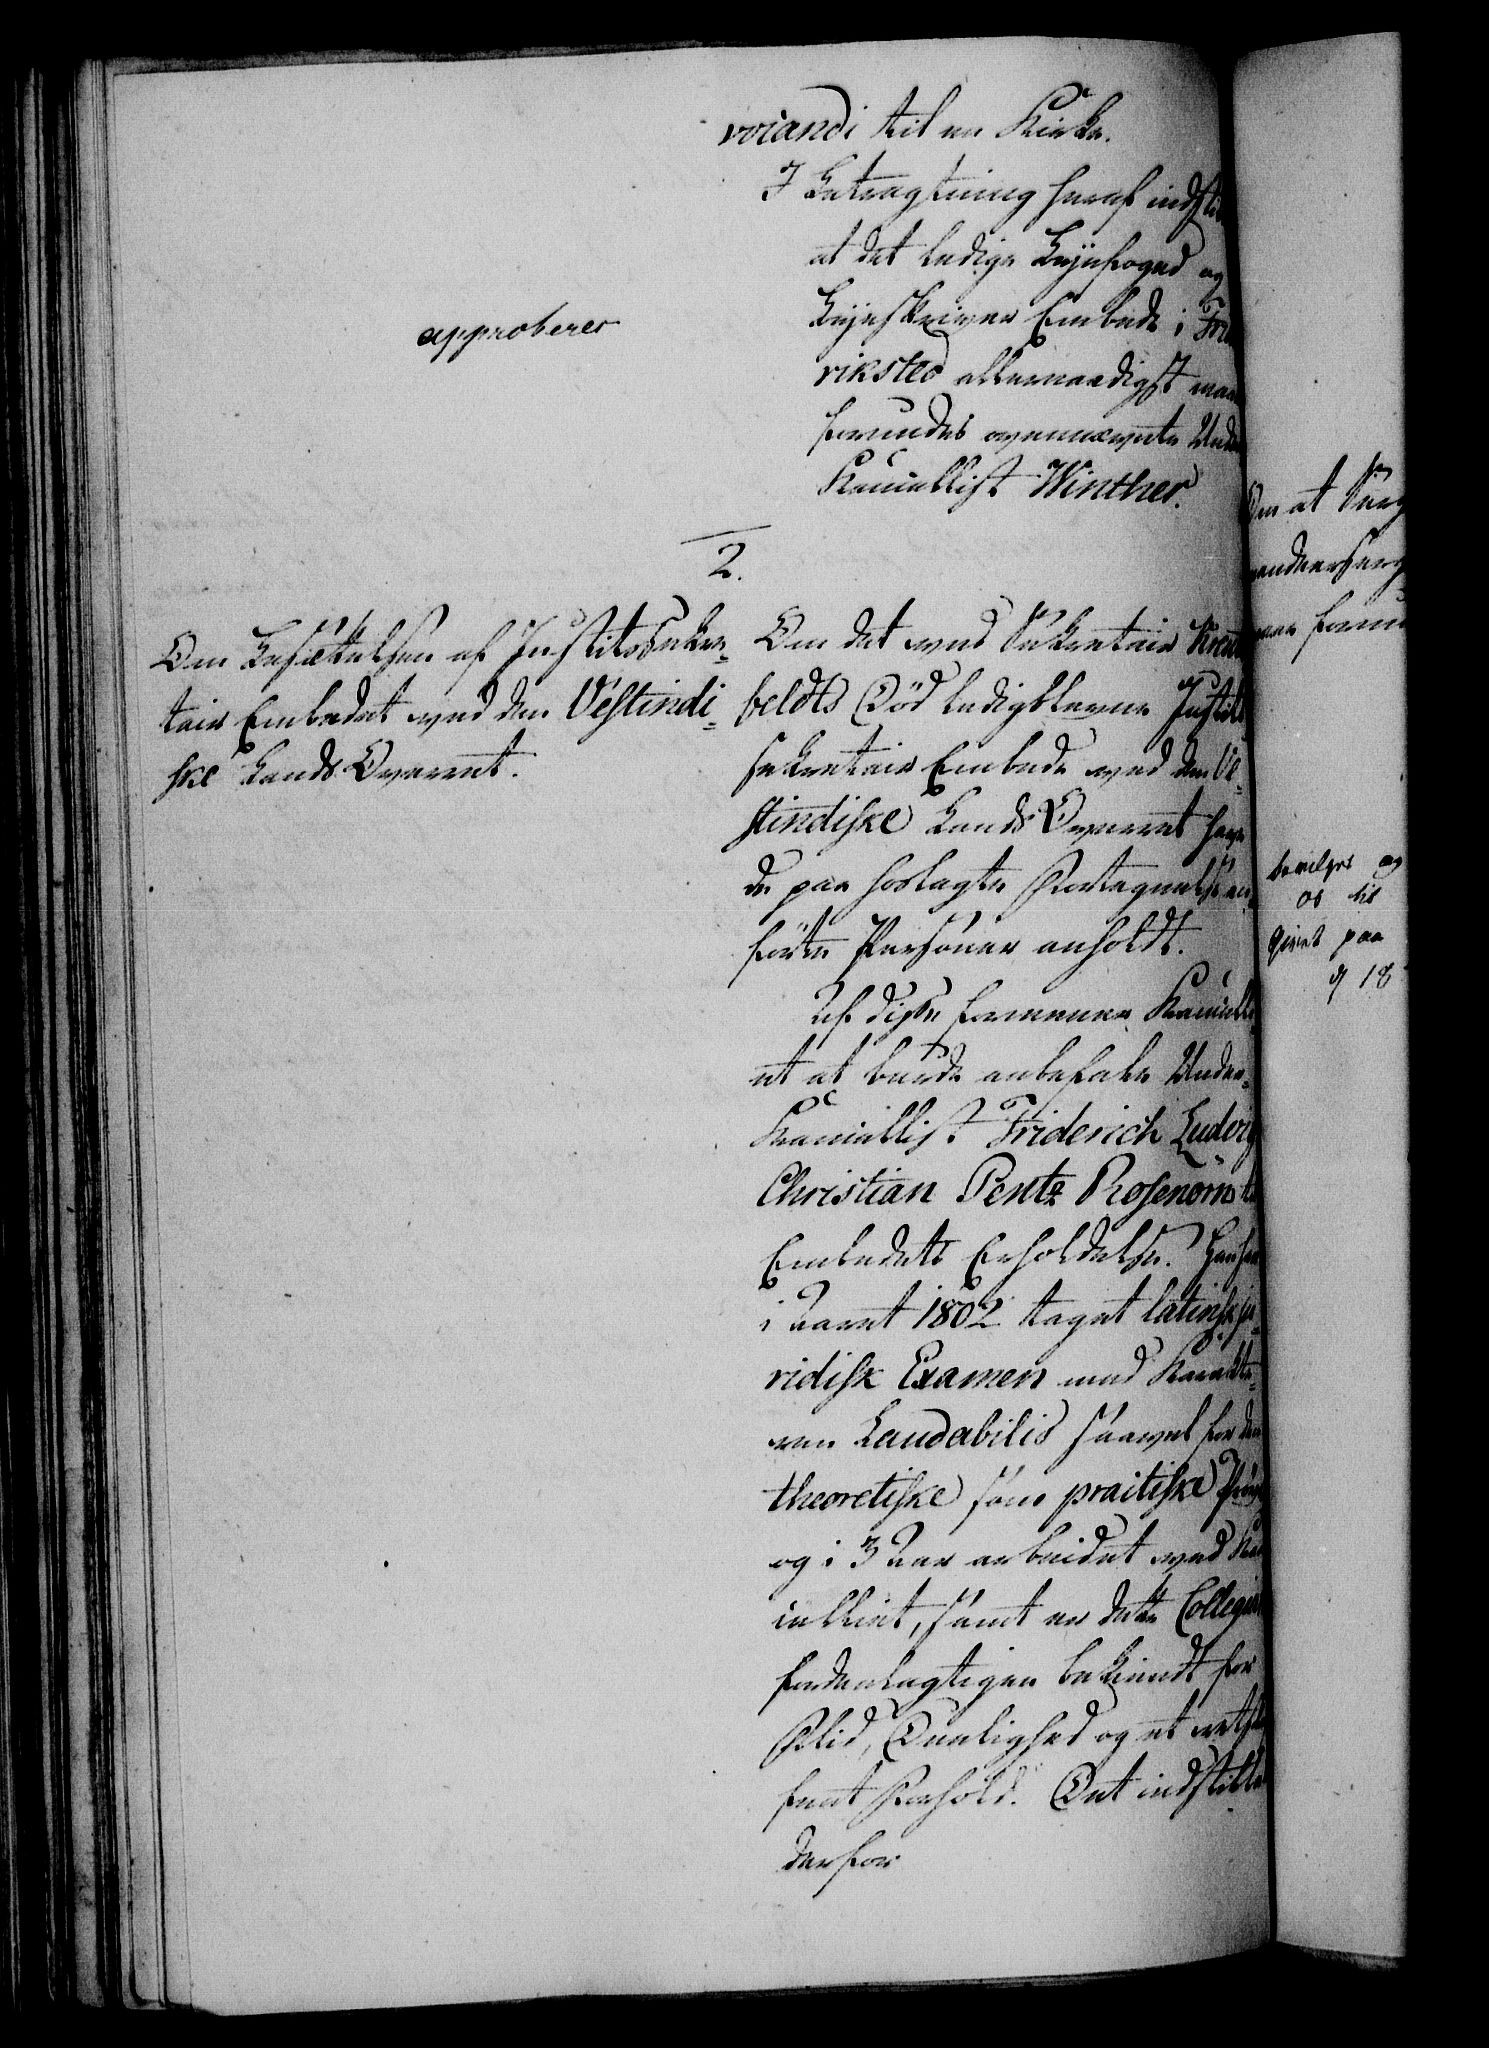 voiandi til en Kirke.
I Betragtning heraf indstil
at det ledige Byefoged og
Byeskriver Embede i Fre
approberer
riksted allernaadigst maa
forundes ovennævnte Under
Kancellist Winther.
2.
Om Besættelsen af Justitssekre-
tair Embedet ved den Vestindi-
ske Lands Overret.
Om det ved Sekretair Kreut
feldts Død ledigblevne Justits
sekretair Embede ved den Ve-
stindiske Lands Overret have
de paa hoslagte Fortegnelse an-
førte Personer anholdt.
Af disse formener Kancelli
et at burde anbefale Under-
Kancellist Friderich Ludvig
Christian Pentz Rosenörn til
Embedets Erholdelse. Han har
i Aaret 1802 taget latinsk ju-
ridisk Examen med Karakte-
ren Laudabilis saavel for den
theoretiske som practiske Prøve
og i 3 Aar arbeidet ved Kan
celliet, samt er dette Collegium
fordeelagtigen bekiendt for
Flid, Duelighed og et retskaf
fent Forhold. Det indstilles
derfor
Om at Seng
maa forun
bevilges og
os til
Givet paa
d 18